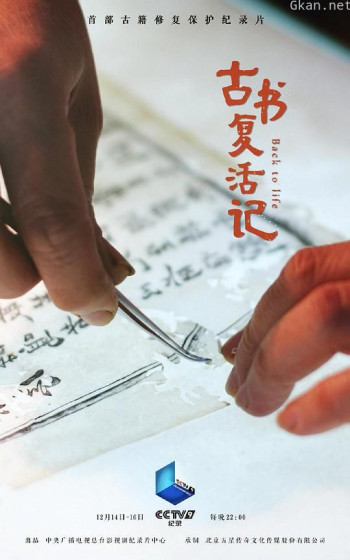 Gkan.net
首部古籍修复保护纪录片
古书复活记
Back to life
CCTV9
纪录
12月14日-16日 每晚22:00
出品 中央广播电视总台影视剧纪录片中心 承制 北京五星传奇文化传媒股份有限公司